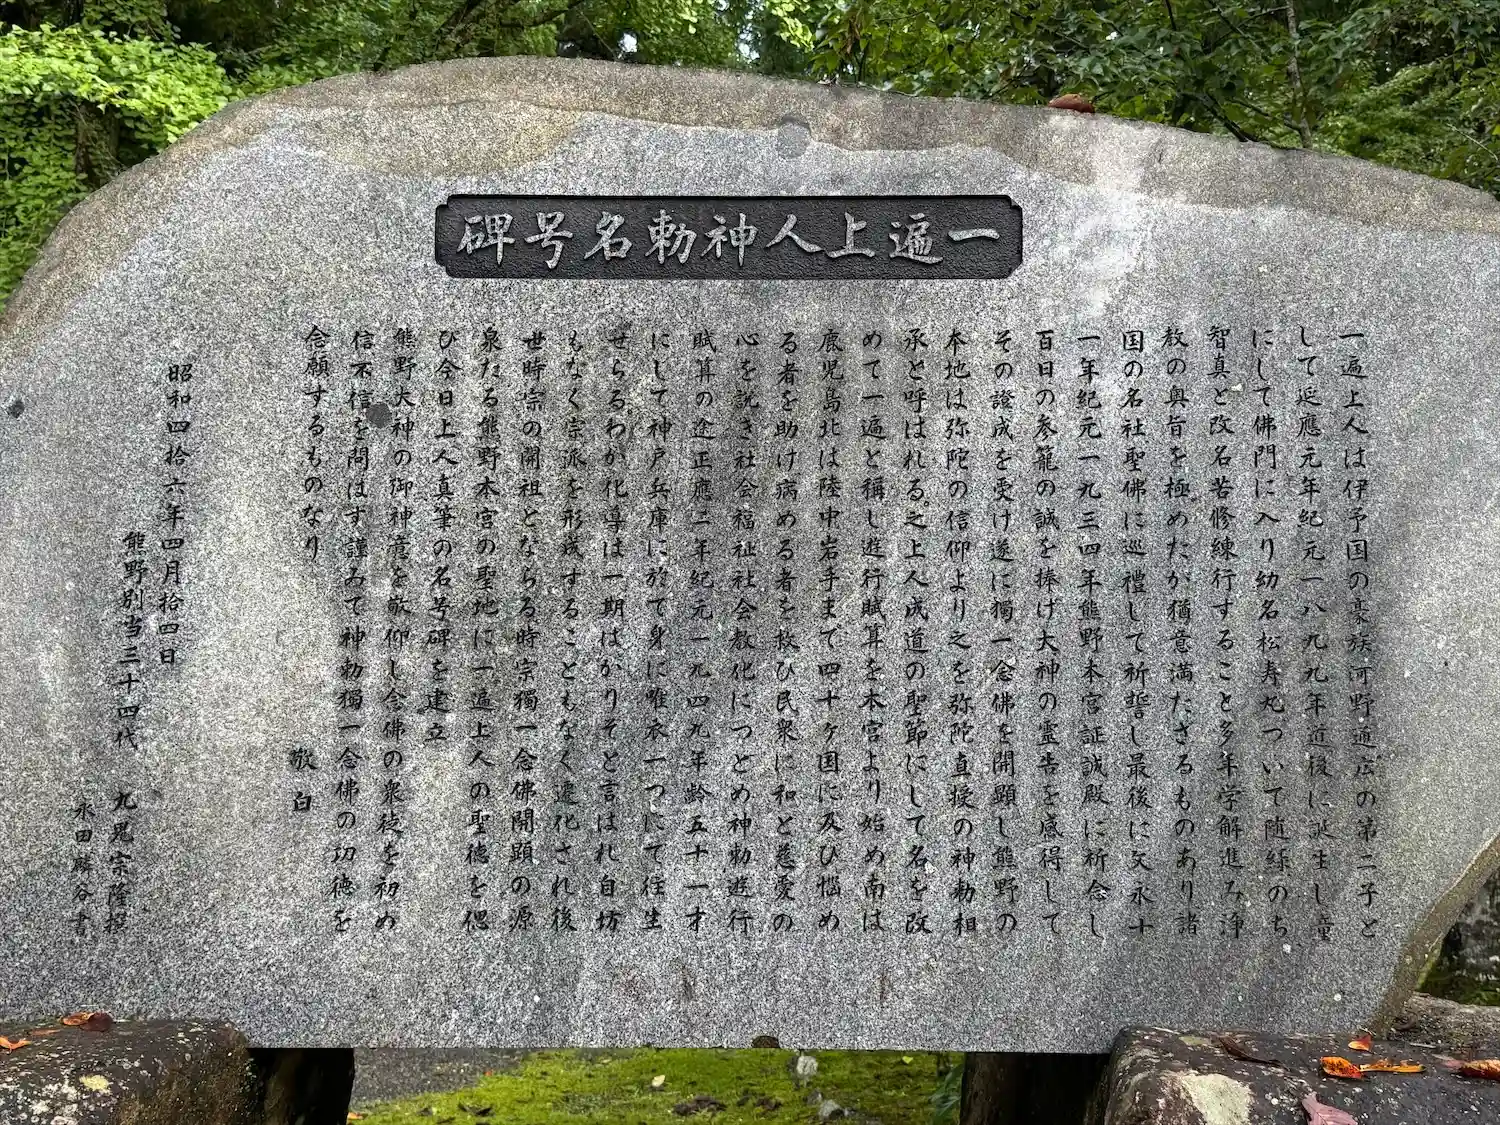 一遍上人神勅名号碑
一遍上人は伊予国の豪族河野通広の第二子と
して延應元年紀元一八九九年道後に誕生し童
にして佛門に入り幼名松寿丸ついで随縁のち
智真と改名苦修練行すること多年学解進み浄
教の奥旨を極めたが猶意満たざるものあり諸
国の名社聖佛に巡禮して祈誓し最後に文永十
一年紀元一九三四年熊野本宮証誠殿に祈念し
百日の参籠の誠を捧げ大神の霊告を感得して
その證成を受け遂に獨一念佛を開顕し熊野の
本地は弥陀の信仰より之を弥陀直授の神勅相
承と呼ばれる。之上人成道の聖節にして名を改
めて一遍と稱し遊行賦算を本宮より始め南は
鹿児島北は陸中岩手まで四十ヶ国に及び悩め
る者を助け病める者を救ひ民衆に和と慈愛の
心を説き社会福祉社会教化につとめ神勅遊行
賦算の途正應二年紀元一九四九年齢五十一才
にして神戸兵庫に於て身に唯衣一つにて往生
せらるわが化導は一期ばかりぞと言はれ自坊
もなく宗派を形成することもなく遷化され後
世時宗の開祖とならる時宗獨一念佛開顕の源
泉たる熊野本宮の聖地に一遍上人の聖徳を偲
び今日上人真筆の名号碑を建立
熊野大神の御神意を敬仰し念佛の衆徒を初め
信不信を問はず謹みて神勅獨一念佛の功徳を
念願するものなり
敬白
昭和四拾六年四月拾四日
熊野別当三十四代 九鬼宗隆撰
永田 谷書